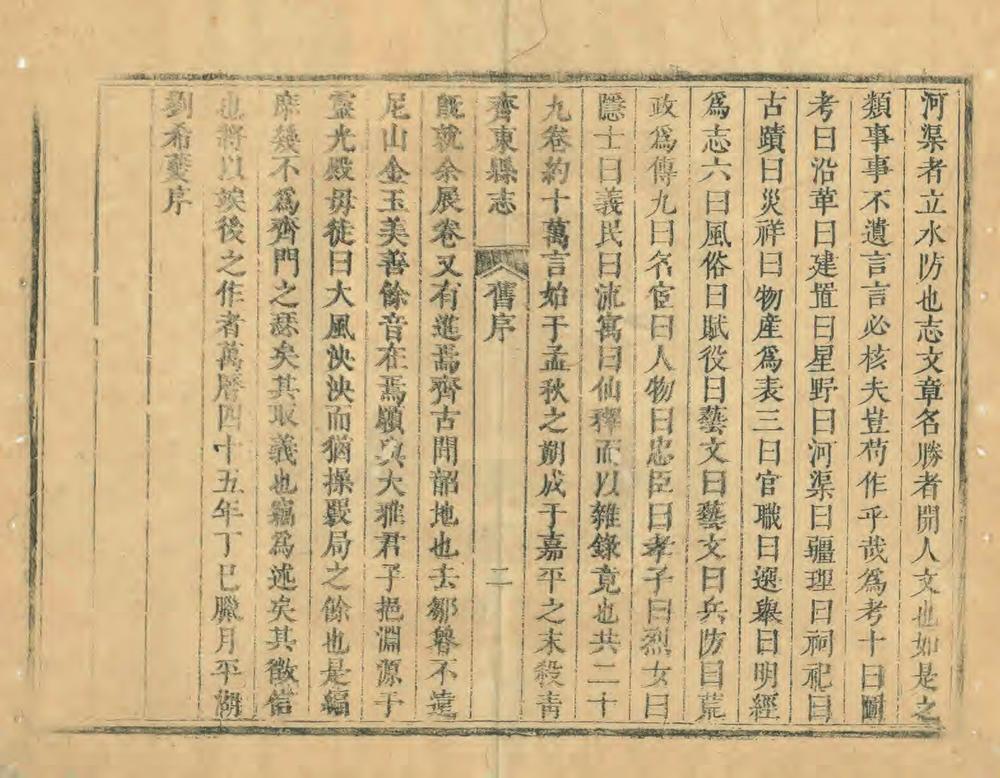 河渠者立水防也志文章名勝者開人文也如是之
類事事不遺言言必核夫豈苟作乎哉爲考十曰圖
考曰沿革曰建置曰星野曰河渠曰疆理曰祠祀曰
古蹟曰災祥曰物產爲表三曰官職曰選舉曰明經
爲志六曰風俗曰賦役曰藝文曰藝文曰兵防曰荒
政爲傳九曰名宦曰人物曰忠臣曰孝子曰烈女曰
隱士曰義民曰流寓曰仙釋而以雜錄竟也共二十
九卷約十萬言始于孟秋之朔成于嘉平之末殺靑
齊東縣志
舊序
二
旣就余展卷又有進焉齊古聞韶地也去鄒魯不遠
尼山金玉美善餘音在焉願與大雅君子挹淵源于
靈光殿毋徒曰大風泱泱而猶操觚局之餘也是編
庶幾不爲齊門之瑟矣其取義也竊爲述矣其徵信
也將以竢後之作者萬曆四十五年丁巳臘月平湖
劉希夔序